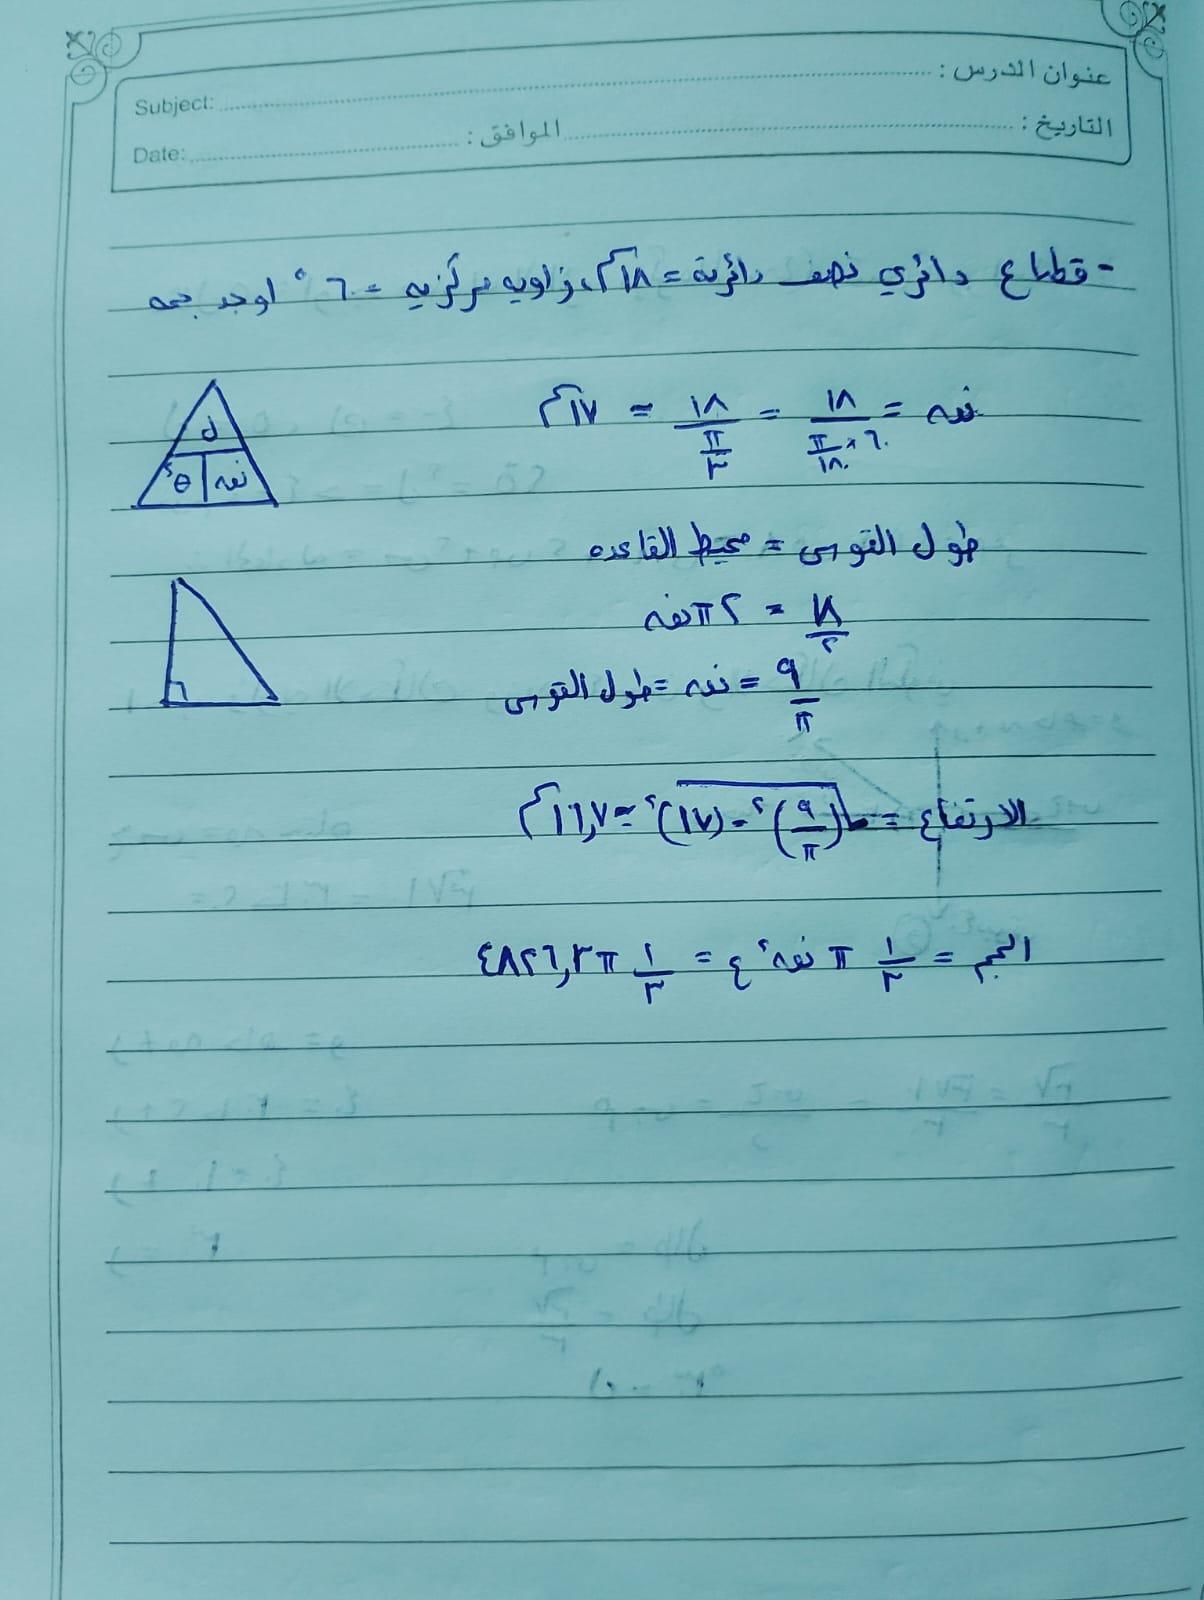 عنوان الدرس :
Subject:
التاريخ : الموافق :
Date:
- قطاع دائري نصف دائرية = ١٨سم، زاويه مركزيه = ٦٠° اوجد حجمه
نقه = ١٨ / (٦٠ × π/١٨٠) = ١٨ / (π/٣) = ١٧سم
ل
θء | نقه
طول القوس = محيط القاعده
١٨/٢ = ٢ π نقه
٩/π = نقه = طول القوس
الارتفاع = √(٩/π)² - (١٧)² = ١٦,٧سم
الحجم = ١/٣ π نقه² ع = ١/٣ π ٤٨٢٦,٣